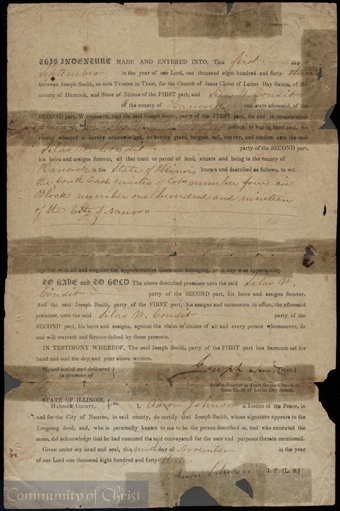 THIS INDENTURE MADE AND ENTERED INTO, This first day
in the year of our Lord, one thousand eight hundred and forty three
between Joseph Smith, as sole Trustee in Trust, for the Church of Jesus Christ of Latter Day Saints, of the
county of Hancock, and State of Illinois of the FIRST part, and Silas W. Condit
of the county of Hancock and state aforesaid, of the
SECOND part, WITNESSETH, that the said Joseph Smith, party of the FIRST part, for and in consideration
to him in hand paid, the
receipt whereof is hereby acknowledged, grant, bargain, sell, convey, and
Silas W. Condit party of the SECOND part,
his heirs and assigns forever, all that tract or parcel of land, situate and being in the county of
Hancock State of Illinois known and described as follows, to wit:
The South East quarter of Lot number four in
Block number one hundred and nineteen
of the City of Nauvoo
together with all and singular the appurtenances thereunto belonging,
TO HAVE and TO HOLD The above described premises unto the said Silas W.
Condit party of the SECOND part, his heirs and assigns forever.
And the said Joseph Smith, party of the FIRST part, his assigns and successors in office, the aforesaid
premises, unto the said Silas W. Condit party of the
SECOND part, his heirs and assigns, against the claim or claims of all and every person whomsoever, do
and will warrant and forever defend by these presents.
IN TESTIMONY WHEREOF, The said Joseph Smith, party of the FIRST part has hereunto set his
hand and seal the day and year above written.
Signed sealed and delivered
in presence of
Joseph Smith
STATE OF ILLINOIS,
HANCOCK COUNTY,
I, Aaron Johnson a Justice of the Peace, in
and for the City of Nauvoo, in said county, do certify that Joseph Smith, whose signature appears to the
foregoing deed, and, who is personally known to me to be the person described in, and who executed the
same, did acknowledge that he had executed the said conveyance for the uses and purposes therein mentioned.
Given under my hand and seal, this day of November in the year
of our Lord one thousand eight hundred and forty
J. P. [L. S.]
Community of Christ